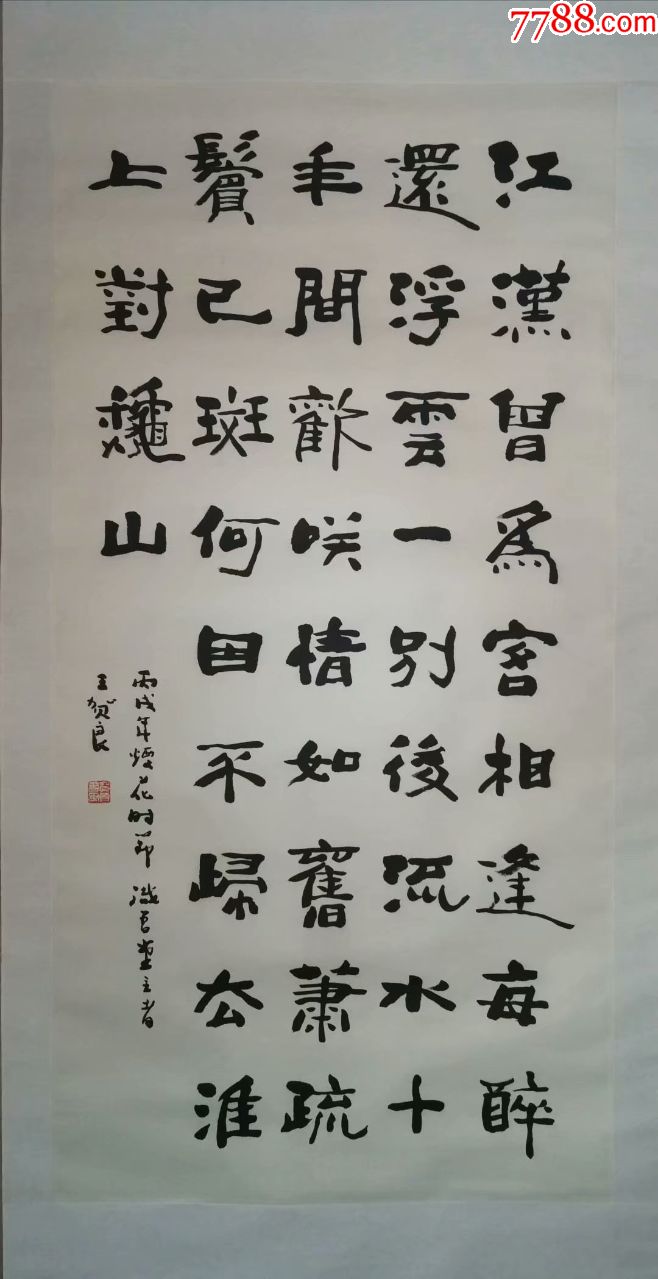 7788.com
江漢曾爲客相逢每醉
還浮雲一別後流水十
年間歡咲情如舊蕭疏
鬢已斑何因不歸去淮
上對龝山
丙戌年煙花时節 堂主者
王贺良